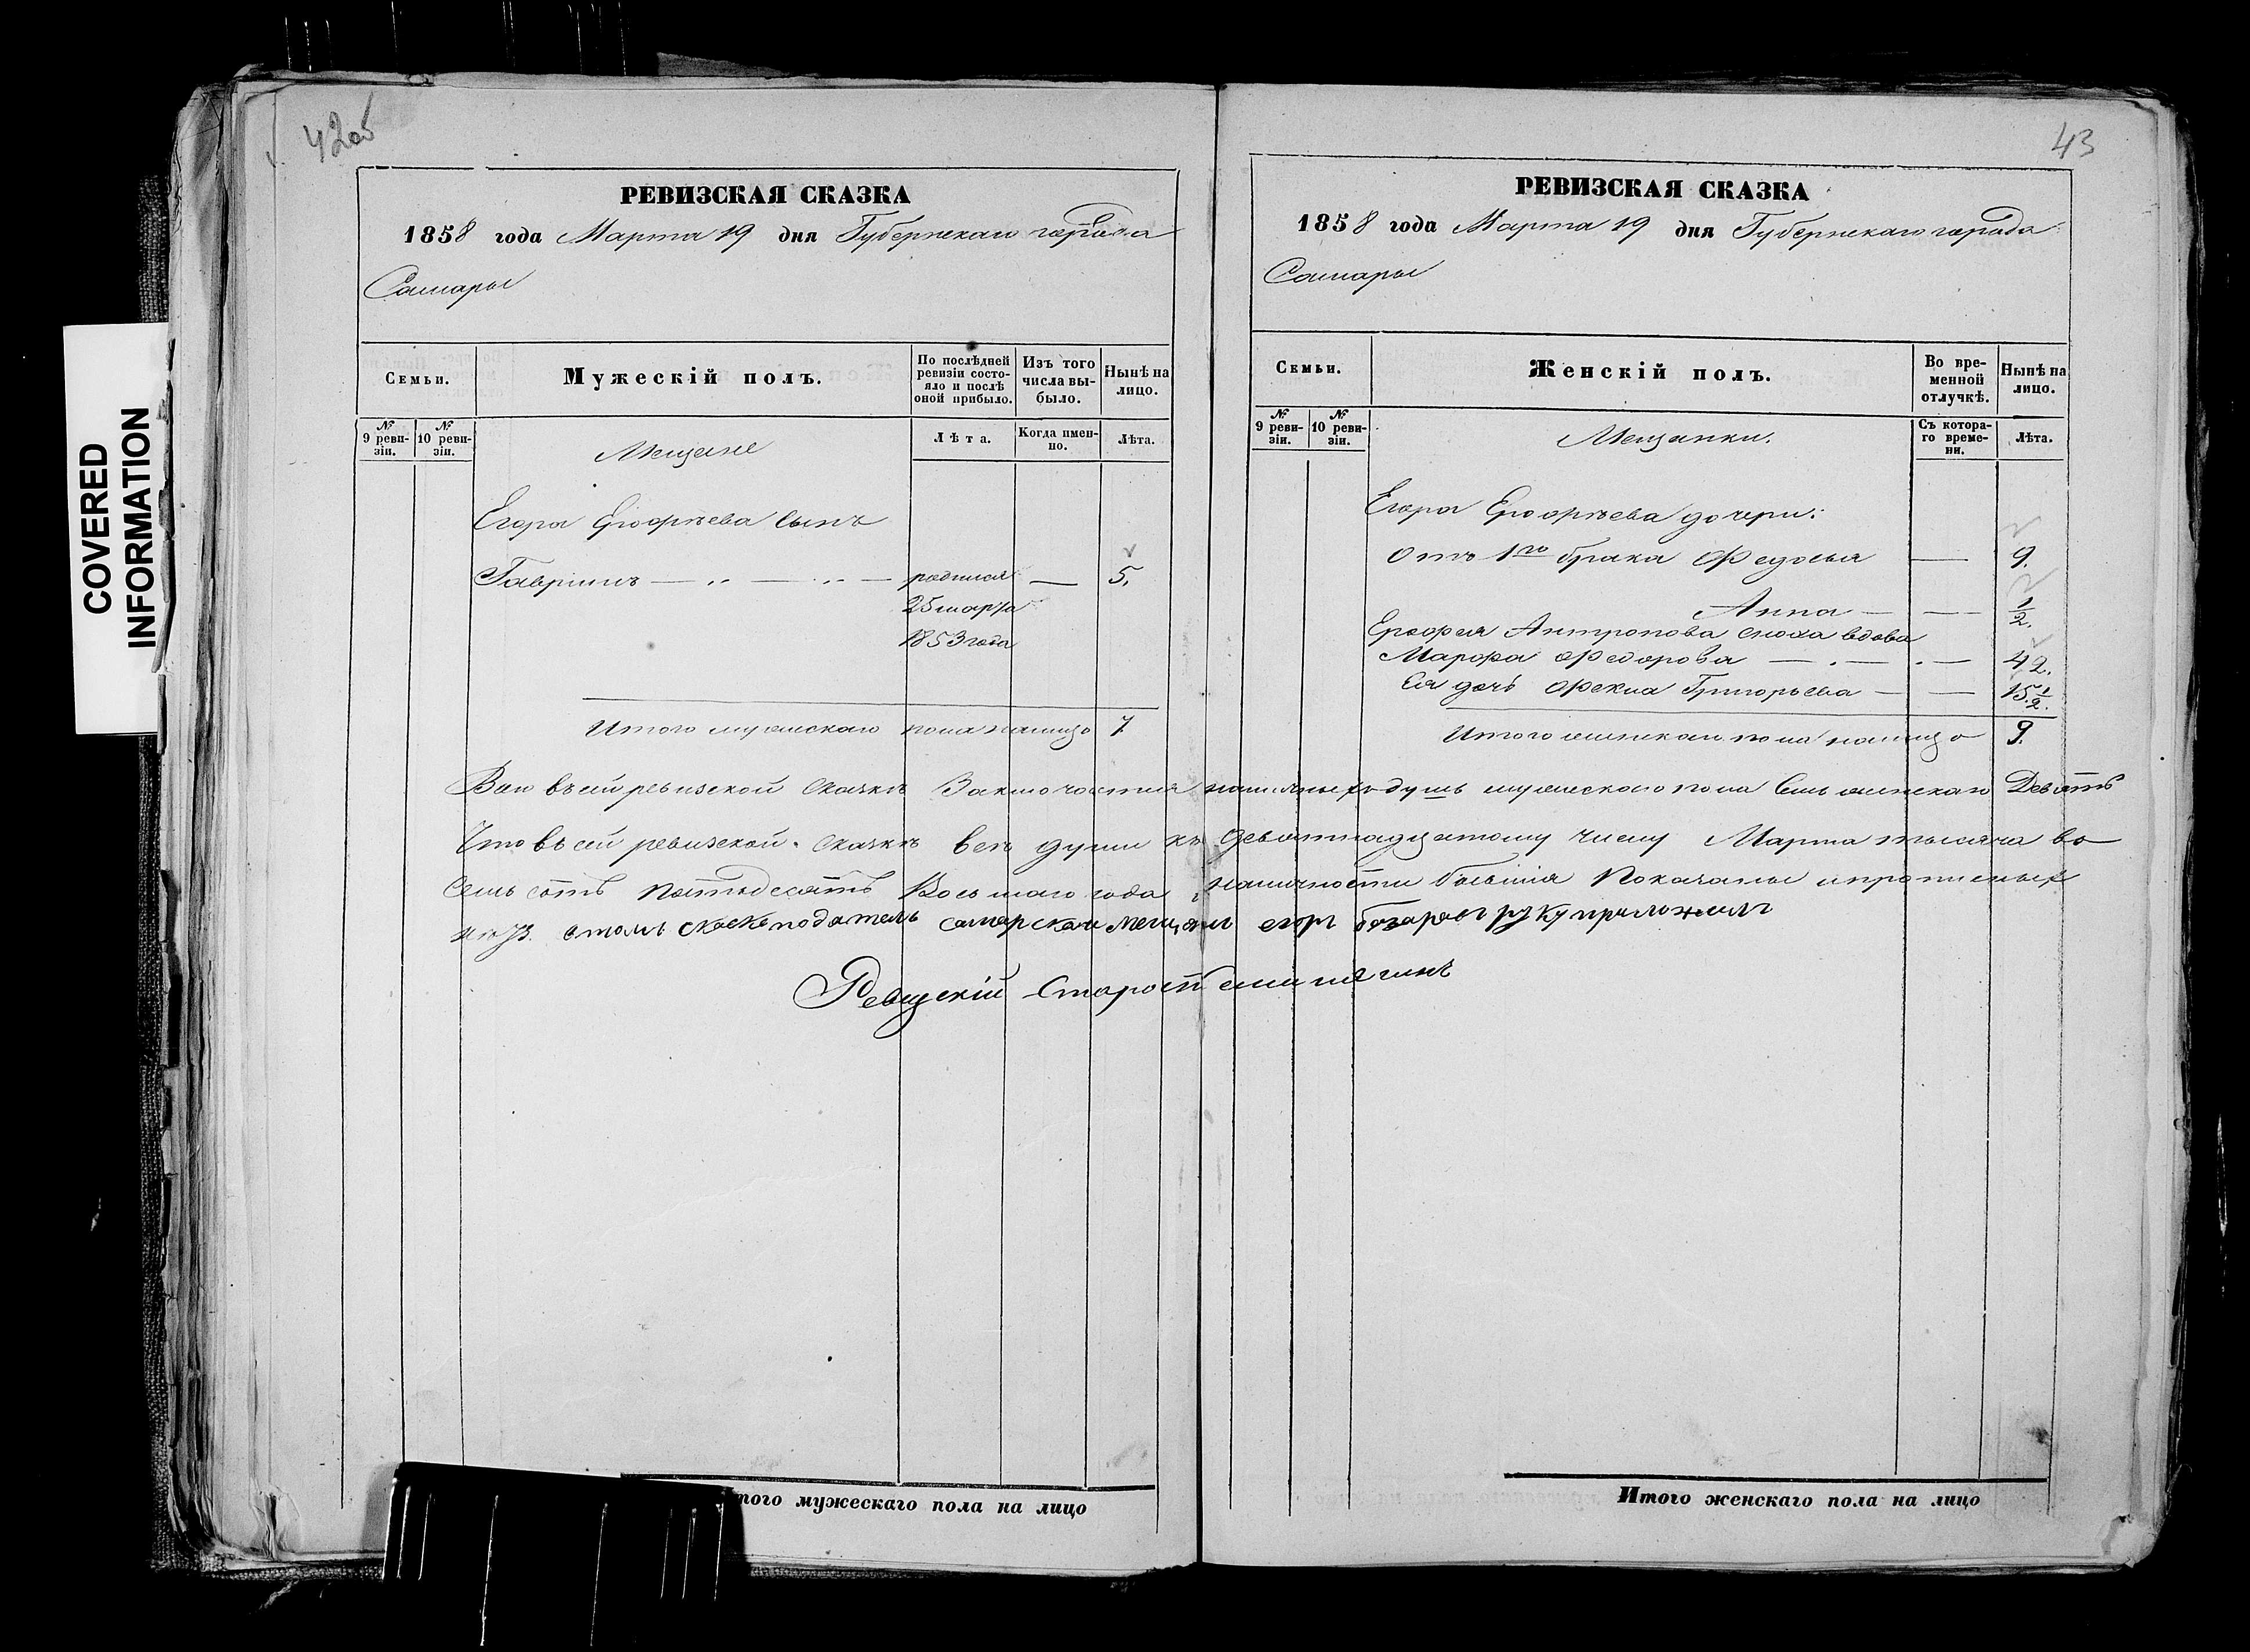 42об
РЕВИЗСКАЯ СКАЗКА
1858 года Марта 19 дня Губернскаго города
Самары
Семьи.
Мужескій полъ.
По послѣдней ревизіи состояло и послѣ оной прибыло.
Изъ того числа выбыло.
Нынѣ на лицо.
№ 9 ревизіи.
№ 10 ревизіи.
Мещане
Лѣта.
Когда именно.
Лѣта.
Егора Ергофѣева сынъ
Гаврилъ — „ — „ — родился — 5.
25 марта
1853 года
Итого мужескаго пола налицо 7
COVERED INFORMATION
43
РЕВИЗСКАЯ СКАЗКА
1858 года Марта 19 дня Губернскаго города
Самары
Семьи.
Женскій полъ.
Во временной отлучкѣ.
Нынѣ на лицо.
№ 9 ревизіи.
№ 10 ревизіи.
Мещанки.
Съ котораго времени.
Лѣта.
Егора Ергофѣева дочери:
отъ 1го брака Федосья — 9.
Анна — — 1/2.
Ергофея Антропова сноха вдова
Марфа Федорова — . — . — 42.
Ея дочь Фекла Григорьева — — 15 1/2.
Итого женскаго пола налицо 9.
Всего въ сей ревизской сказкѣ Заключается наличныхъ душъ мужескаго пола Семь женскаго Девять
Что въ сей ревизской сказкѣ всѣ души къ девятнадцатому числу Марта тысяча во
семь сотъ пятьдесятъ Восьмаго года наличности бывшія Показаны и прописныхъ
нѣтъ. в томъ скаскоподатель самарскои мещенин егорг руку приложилъ
Ревизскій Староста
того мужескаго пола на лицо
Итого женскаго пола на лицо